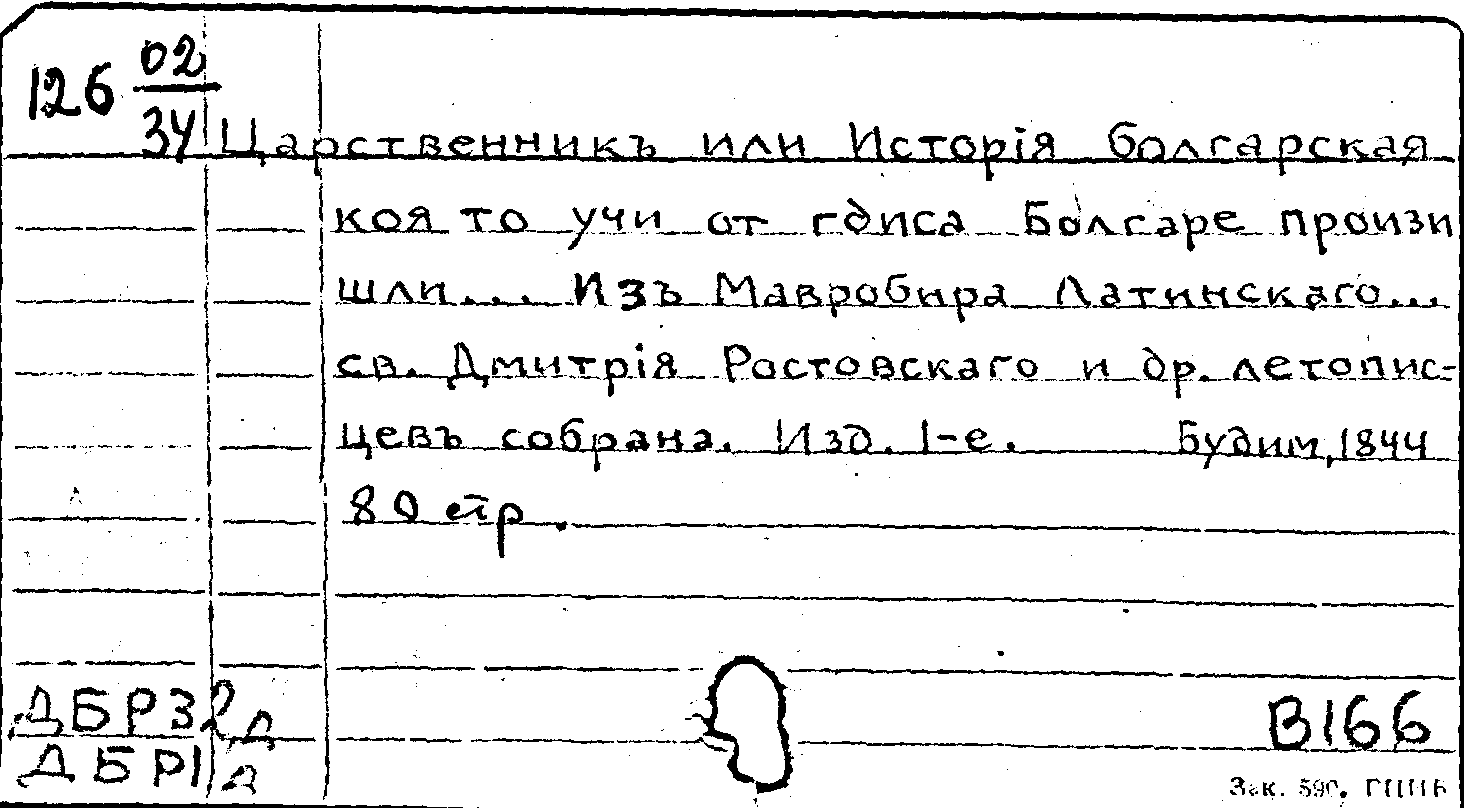 126 02/34
Царственникъ или Исторія болгарская
коя то учи от гдиса Болгаре произи
шли... Изъ Мавробира Латинскаго...
св. Дмитрія Ростовскаго и др. летопис-
цевъ собрана. Изд. 1-е. Будим, 1844
80 стр.
ДБР32д
ДБР1д
В166
Зак. 590.